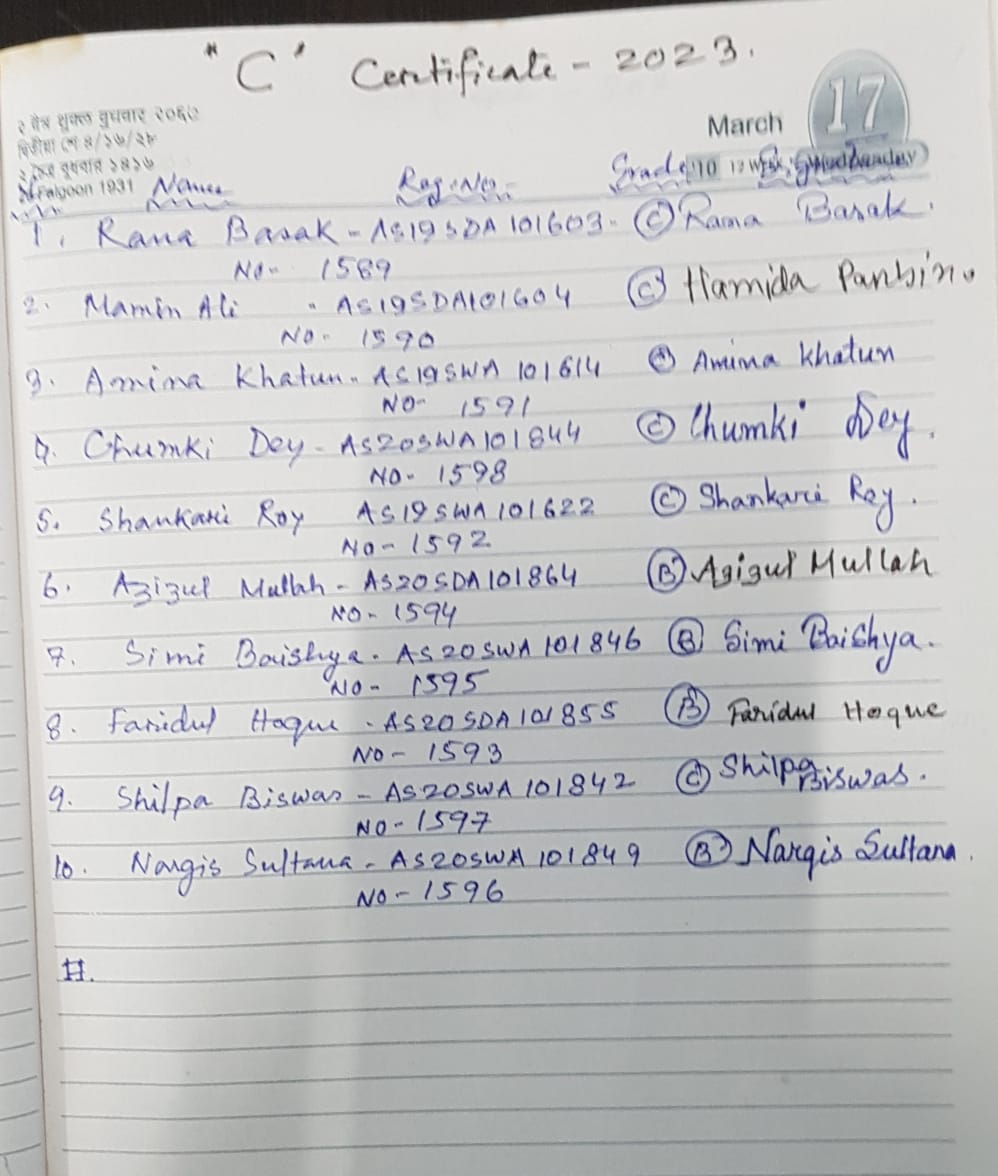 "C" Certificate - 2023.
March 17
Falgoon 1931
Names Reg. No. Grade
1. Rana Basak - AS19SDA101603 - (C) Rama Basak.
No - 1589
2. Mamin Ali - AS19SDA101604 (C) Hamida Parbin.
No - 1590
3. Amina Khatun - AS19SWA101614 Amina Khatun
NO - 1591
4. Chumki Dey - AS20SWA101844 (C) Chumki Dey.
NO - 1598
5. Shankari Roy AS19SWA101622 (C) Shankari Roy.
No - 1592
6. Azizul Mullah - AS20SDA101864 (B) Azizul Mullah
NO - 1594
7. Simi Baishya - AS20SWA101846 (B) Simi Baishya.
NO - 1595
8. Faridul Hoque - AS20SDA101855 (B) Faridul Hoque
NO - 1593
9. Shilpa Biswas - AS20SWA101842 (C) Shilpa Biswas.
NO - 1597
10. Nargis Sultana - AS20SWA101849 (B) Nargis Sultana.
NO - 1596
11.